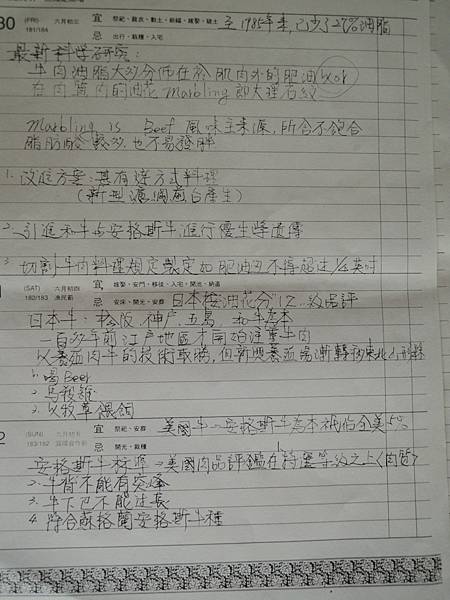 30 (FRI) 六月初三 宜 祭祀、裁衣、動土、嫁娶、破土 至1985年來,已少了27%油脂
181/184 忌 出行、栽種、入宅
最新科學研究:
牛肉油脂大多分佈在於肌肉外的肥油
在肉裏肉的油花Marbling即大理石紋
Marbling is Beef 風味主來源,所含不飽合
脂肪酸較多也不易發胖
1. 改進方案:甚有達方式料理
(新型 產生)
2. 引進和牛与安格斯牛進行優生學遺傳
3. 切割牛肉料理規定製定如肥油多不得超过1/4英吋
(SAT) 六月初四 宜 嫁娶、安門、移徙、入宅、開池、納畜
182/183 漁民節 忌 安床、開光、安葬 日本按"油花分"12級品評
日本牛:松阪 神户 五島 和牛為本
一百多年前江戶地區才開始注重牛肉
以養 肉牛的技術取勝,但新興養 場漸轉移東北山形縣
1. 喝Beer
2. 馬殺雞
3. 以牧草餵飼
2 (SUN) 六月初五 宜 祭祀、安葬 美國牛 安格斯牛為本 佔全美5%
183/182 忌 開光、栽種
安格斯牛標準 美國肉品評鑑在特選等級之上(肉質)
2. 牛背不能有突峰
3. 牛下巴不能过長
4. 符合蘇格蘭安格斯牛種